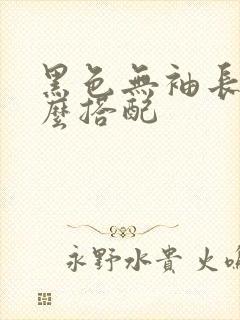 黑色無袖長
麼搭配
永野水貴 火